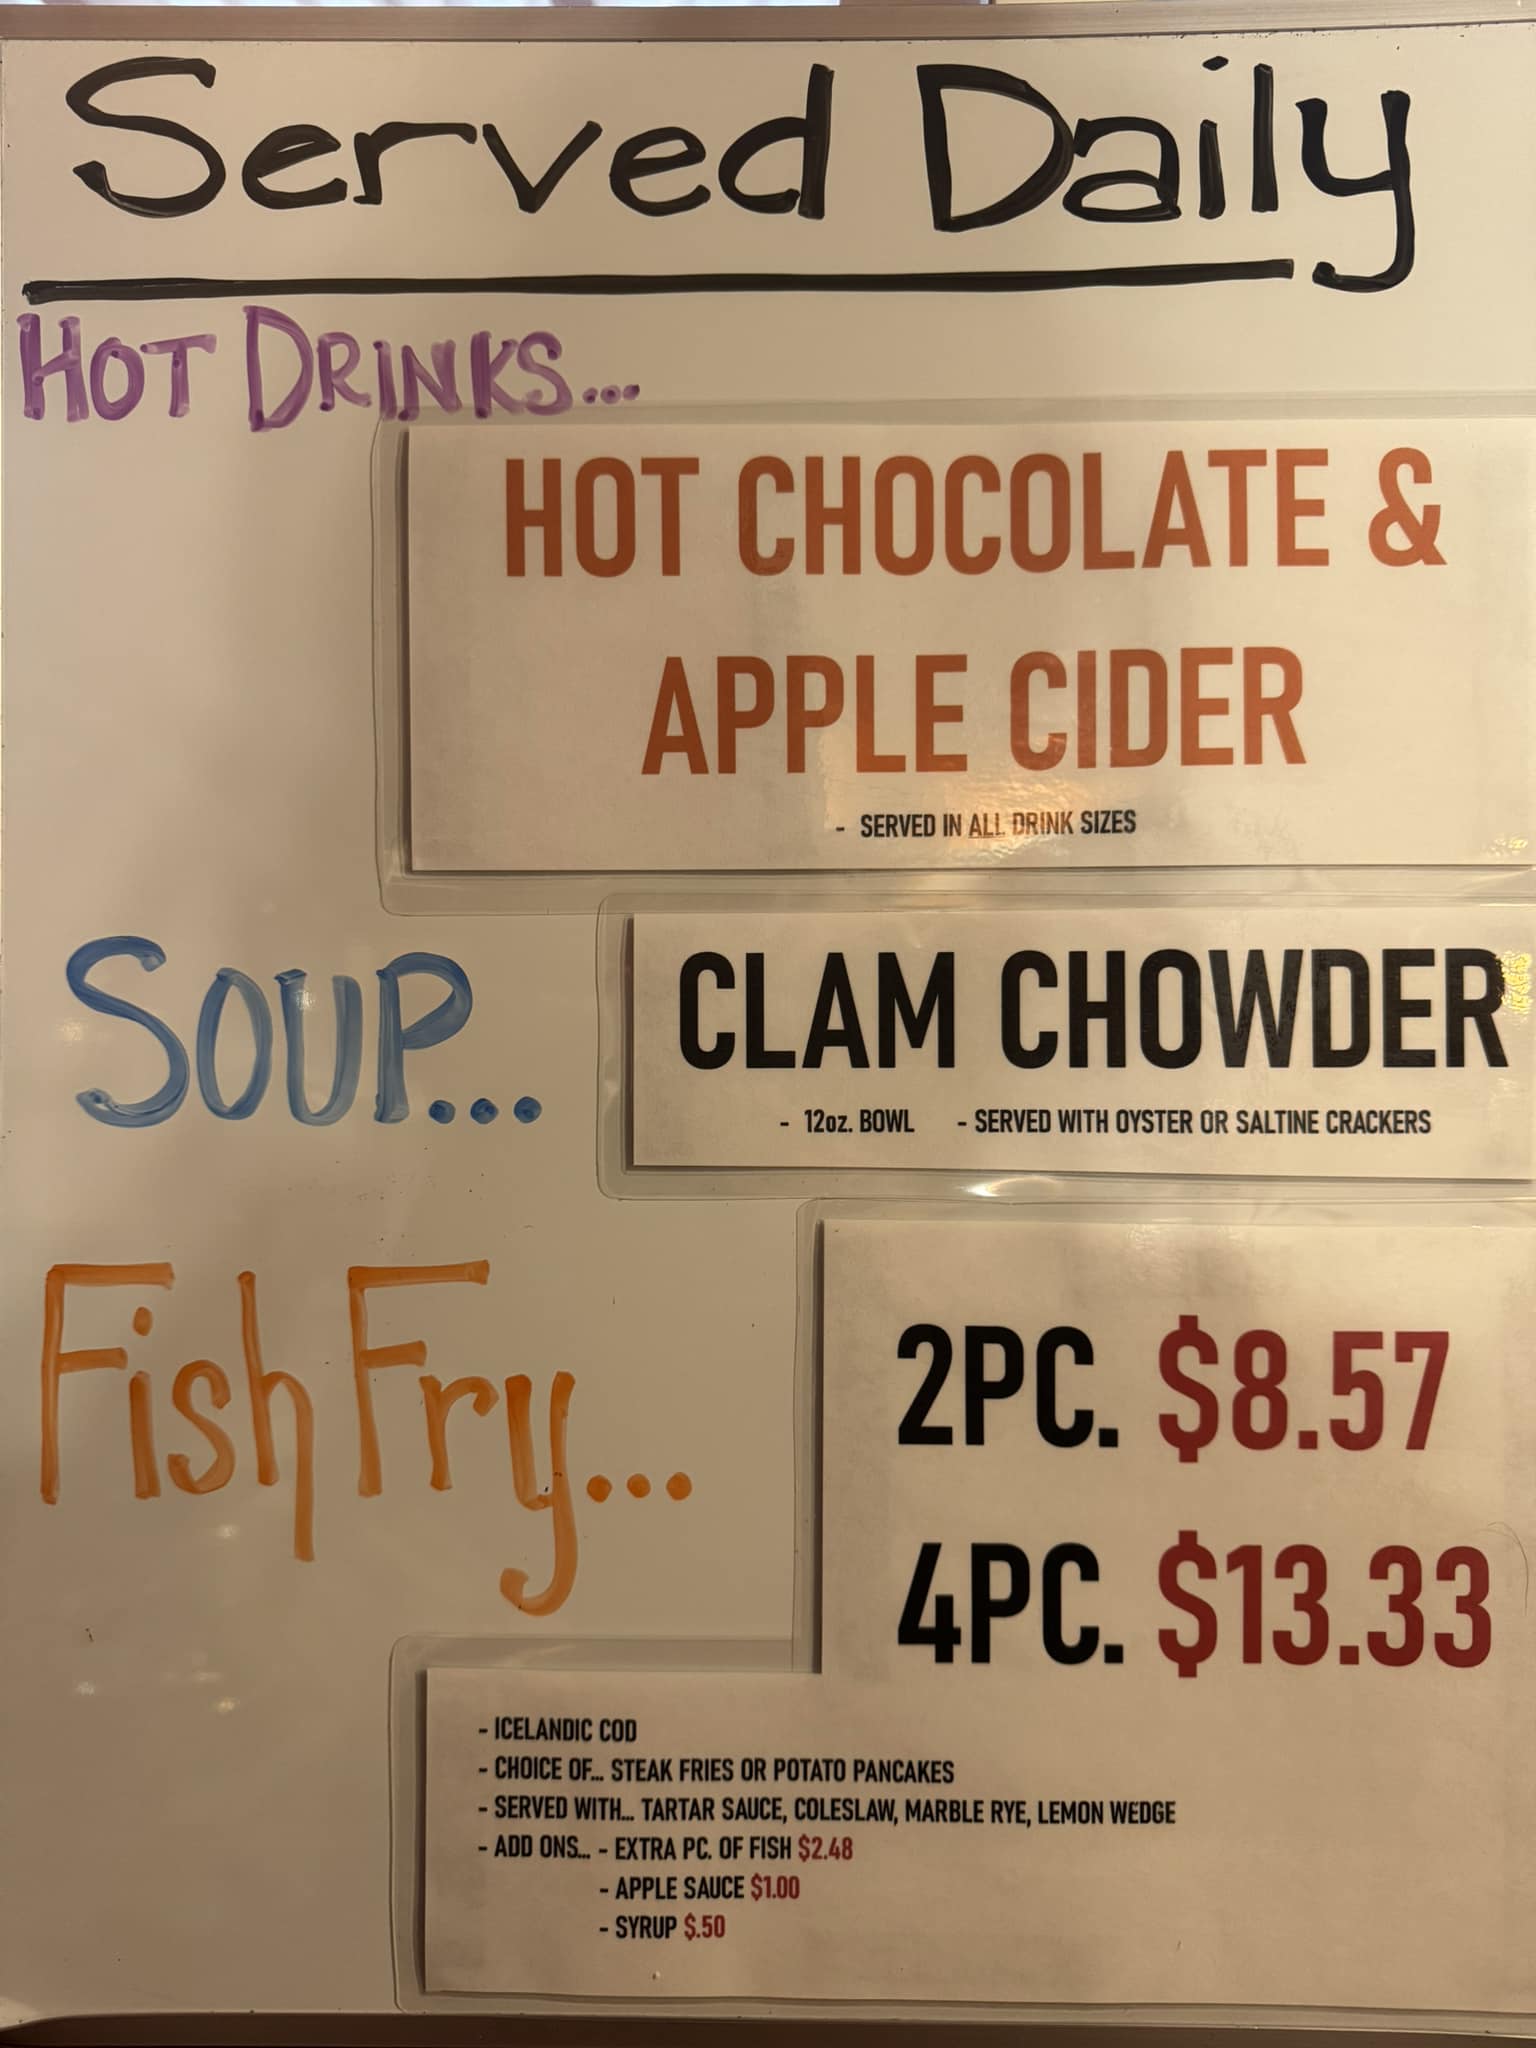 Served Daily
HOT DRINKS...
HOT CHOCOLATE &
APPLE CIDER
- SERVED IN ALL DRINK SIZES
SOUP...
CLAM CHOWDER
- 12oz. BOWL - SERVED WITH OYSTER OR SALTINE CRACKERS
Fish Fry...
2PC. $8.57
4PC. $13.33
- ICELANDIC COD
- CHOICE OF... STEAK FRIES OR POTATO PANCAKES
- SERVED WITH... TARTAR SAUCE, COLESLAW, MARBLE RYE, LEMON WEDGE
- ADD ONS... - EXTRA PC. OF FISH $2.48
- APPLE SAUCE $1.00
- SYRUP $.50